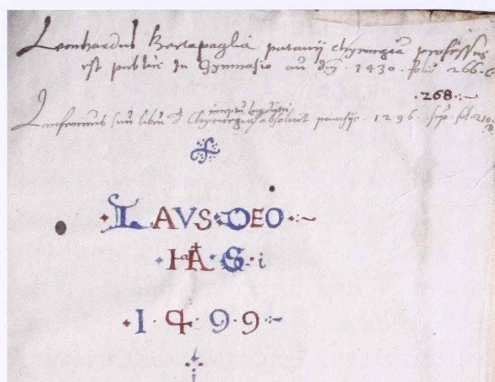 Leonhardus Bertapaglia patavij chyrurgiã professus
est publicè In Gymnasio an̄ dñj · 1430 · folio 266 ·
· 268 · : ~
Lanfrancus suũ librũ d Chyrurgia absoluit · 1296 ·
· LAVS · DEO · : ~
· 1 · 4 · 9 · 9 · ~